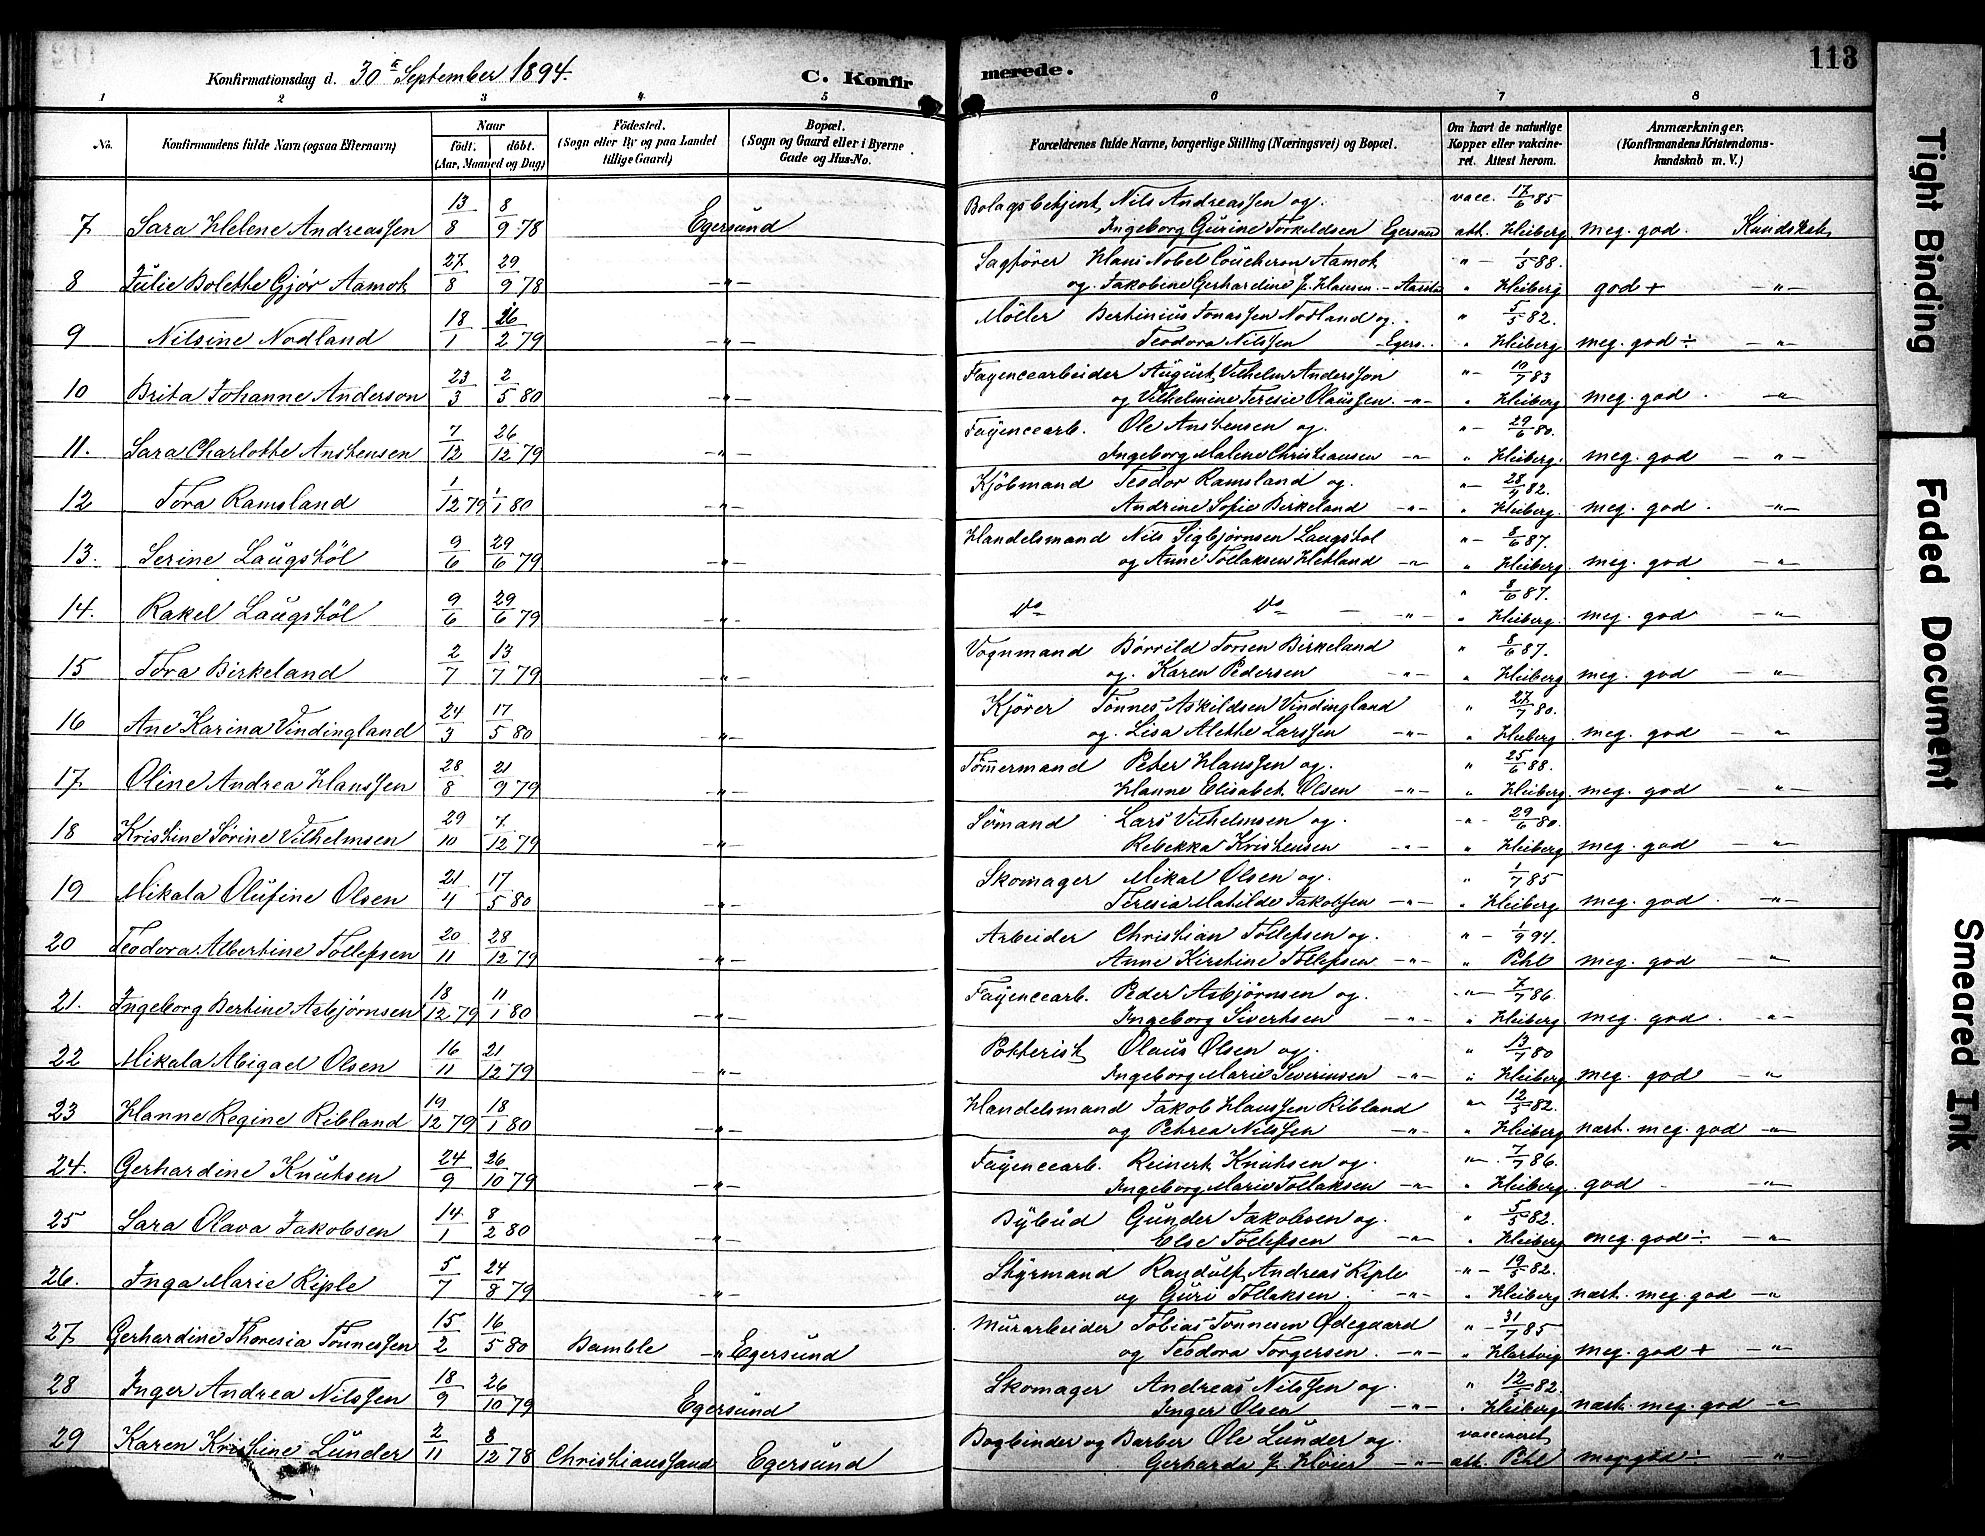 113
Konfirmationsdag d. 30te September 1894.
C. Konfirmerede.
1 2 3 4 5 6 7 8
No. Konfirmandens fulde Navn (ogsaa Efternavn) Naar Födt. döbt. (Aar, Maaned og Dag) Födested. (Sogn eller By og paa Landet tillige Gaard) Bopæl. (Sogn og Gaard eller i Byerne Gade og Hus-No. Forældrenes fulde Navne, borgerlige Stilling (Næringsvei) og Bopæl. Om havt de naturlige Kopper eller vakcineret. Attest herom. Anmærkninger. (Konfirmandens Kristendomskundskab m. V.)
13 8 Nils Andreassen og vacc. 17/6 85
7 Sara Helene Andreassen 8 9 78 Egersund Ingeborg Gurine Torkildsen Egersund att. Heiberg meg. god. Kundskab
27 29 Sagfører Hans Nobel Coucheron Aamot " — 1/5 88.
8 Julie Bolethe Gjør Aamot 8 9 78 —"— og Jakobine Gerhardine f. Hansen " Heiberg god + —"—
18 26 Møller Bertinius Jonassen Nodland og " 5/5 82.
9 Nilsine Nodland 1 2 79 —"— Teodora Nilssen Egers. " Heiberg meg. god ÷ —"—
23 2 Fayencearbeider August Vilhelm Andersson "— 10/7 83
10 Brita Johanne Anderson 3 5 80 —"— og Vilhelmine Teresie Olaussen —"— " Heiberg meg. god. —"—
7 26 Fayencearb. Ole Anstensen og "— 29/6 80.
11. Sara Charlotte Anstensen 12 12 79 —"— Ingeborg Malene Christiansen —"— " Heiberg. meg. god —"—
1 1 Kjöbmand Teodor Ramsland og "— 28/7 82.
12 Tora Ramsland 12 79 1 80 —"— Andrine Sofie Birkeland —"— " Heiberg. meg. god. —"—
9 29 Handelsmand Nils Sigbjørnsen Laugstol "— 8/6 87.
13. Serine Laugstöl 6 6 79 —"— og Anne Tollaksen Hetland —"— " Heiberg. meg. god —"—
9 29 " 8/6 87.
14. Rakel Laugstöl 6 6 79 —"— do do — —"— " Heiberg. meg. god —"—
2 13 Vognmand Börrild Torsen Birkeland " 8/6 87.
15 Tora Birkeland 7 7 79 —"— og Karen Pedersen —"— " Heiberg meg. god —"—
24 17 Kjører Tönnes Askildsen Vindingland " 27/7 80.
16 Ane Karina Vindingland 3 5 80 —"— og Lisa Alethe Larssen —"— " Heiberg meg. god —"—
28 21 Tømmermand Peter Hanssen og " 25/6 88.
17. Oline Andrea Hanssen 8 9 79 —"— Hanne Elisabet Olsen —"— " Heiberg. meg. god —"—
29 7 Sømand Lars Vilhelmsen og —"— 29/6 80.
18 Kristine Sørine Vilhelmsen 10 12 79 —"— Rebekka Kristensen —"— " Heiberg meg. god —"—
21 17 Skomager Mikal Olsen og " 1/7 85
19 Mikala Olufine Olsen 4 5 80 —"— Teresia Matilde Jakobsen —"— " Heiberg meg. god. —"—
20 28 Arbeider Christian Tollefsen og "— 1/9 94.
20 Teodora Albertine Tollefsen 11 12 79 —"— Anne Kirstine Tollefsen —"— " Pihl meg. god —"—
18 11 Fayencearb. Peder Asbjörnsen og —"— 7/7 86.
21. Ingeborg Bertine Asbjörnsen 12 79 1 80 —"— Ingeborg Sivertsen —"— " Heiberg meg. god. —"—
16 21 Potterist Olaus Olsen og " 13/7 80
22 Mikala Abigael Olsen 11 12 79 —"— Ingeborg Marie Severinsen —"— " Heiberg meg. god —"—
19 18 Handelsmand Jakob Hanssen Ribland "— 12/5 82.
23 Hanne Regine Ribland 12 79 1 80 —"— og Petrea Nilssen —"— " Heiberg næst. meg. god —"—
24 26 Fayencearb. Reinert Knutsen og "— 7/7 86.
24. Gerhardine Knutsen 9 10 79 —"— Ingeborg Marie Tollaksen —"— " Heiberg. god —"—
14 8 Bybud Gunder Jakobsen og " 5/5 82.
25 Sara Olava Jakobsen 1 2 80 —"— Else Tollefsen —"— " Heiberg meg. god ÷ —"—
5 24 Styrmand Randulf Andreas Riple —"— 19/5 82.
26. Inga Marie Riple 7 8 79 —"— og Guri Tollaksen. —"— " Heiberg næst. meg. god —"—
15 16 Murarbeider Tobias Tonnesen Ødegaard " — 31/7 85
27 Gerhardine Thoresia Tönnessen 2 5 80 Bamble —"— Egersund og Teodora Torgersen. —"— " Hartvig meg. god + —"—
18 26 Skomager Andreas Nilssen og " 12/5 82.
28 Inger Andrea Nilssen 9 10 79 Egersund Inger Olsen —"— " Heiberg næst. meg. god —"—
2 8 Bogbinder og Barber Ole Lunder og vaccineret
29 Karen Kristine Lunder 11 12 78 Christianssand Egersund Gerharda f. Höier —"— att. Pihl meg. god ÷ —"—
Tight Binding
Faded Document
Smeared Ink